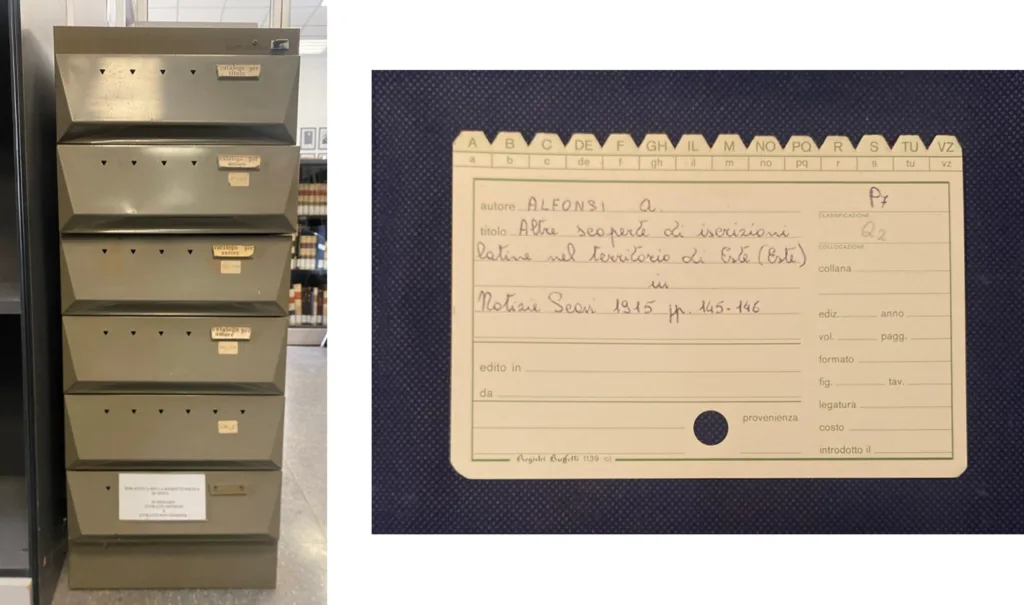 catalogo per
titolo
catalogo per
autore
catalogo per
autore
catalogo per
autore
A B C DE F GH IL M NO PQ R S TU VZ
a b c de f gh il m no pq r s tu vz
P7
autore ALFONSI A.
CLASSIFICAZIONE
Q2
titolo Altre scoperte di iscrizioni
latine nel territorio di Este (Este)
COLLOCAZIONE
in
collana
Notizie Scavi 1915 pp. 145-146
ediz. anno
vol. pagg.
formato
edito in
fig. tav.
da
legatura
provenienza
costo
introdotto il
Registri Buffetti 1139